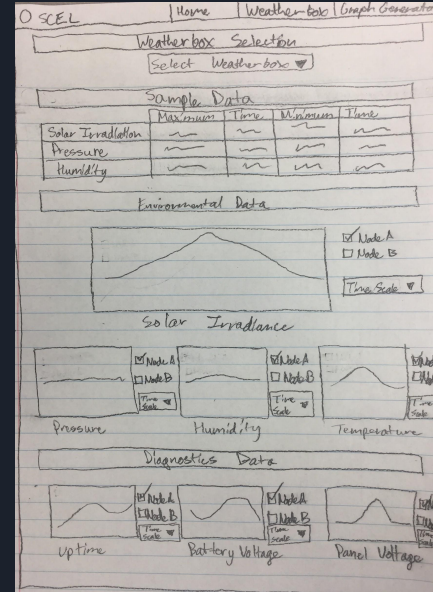 SCEL Home Weatherbox Graph Generator
Weatherbox Selection
Select Weatherbox ▼
Sample Data
Maximum Time Minimum Time
Solar Irradiation
Pressure
Humidity
Enviromental Data
Node A
Node B
Time Scale ▼
Solar Irradiance
Node A Node A
Node B Node B
Time Scale ▼ Time Scale ▼ Time Scale
Pressure Humidity Temperature
Diagnostics Data
Node A Node A
Node B Node B
Time Scale ▼ Time Scale ▼
Uptime Battery Voltage Panel Voltage